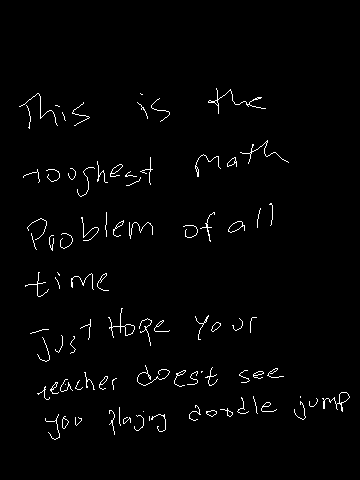 This is the
toughest math
Problem of all
time
Just Hope your
teacher doest see
you playing doodle jump